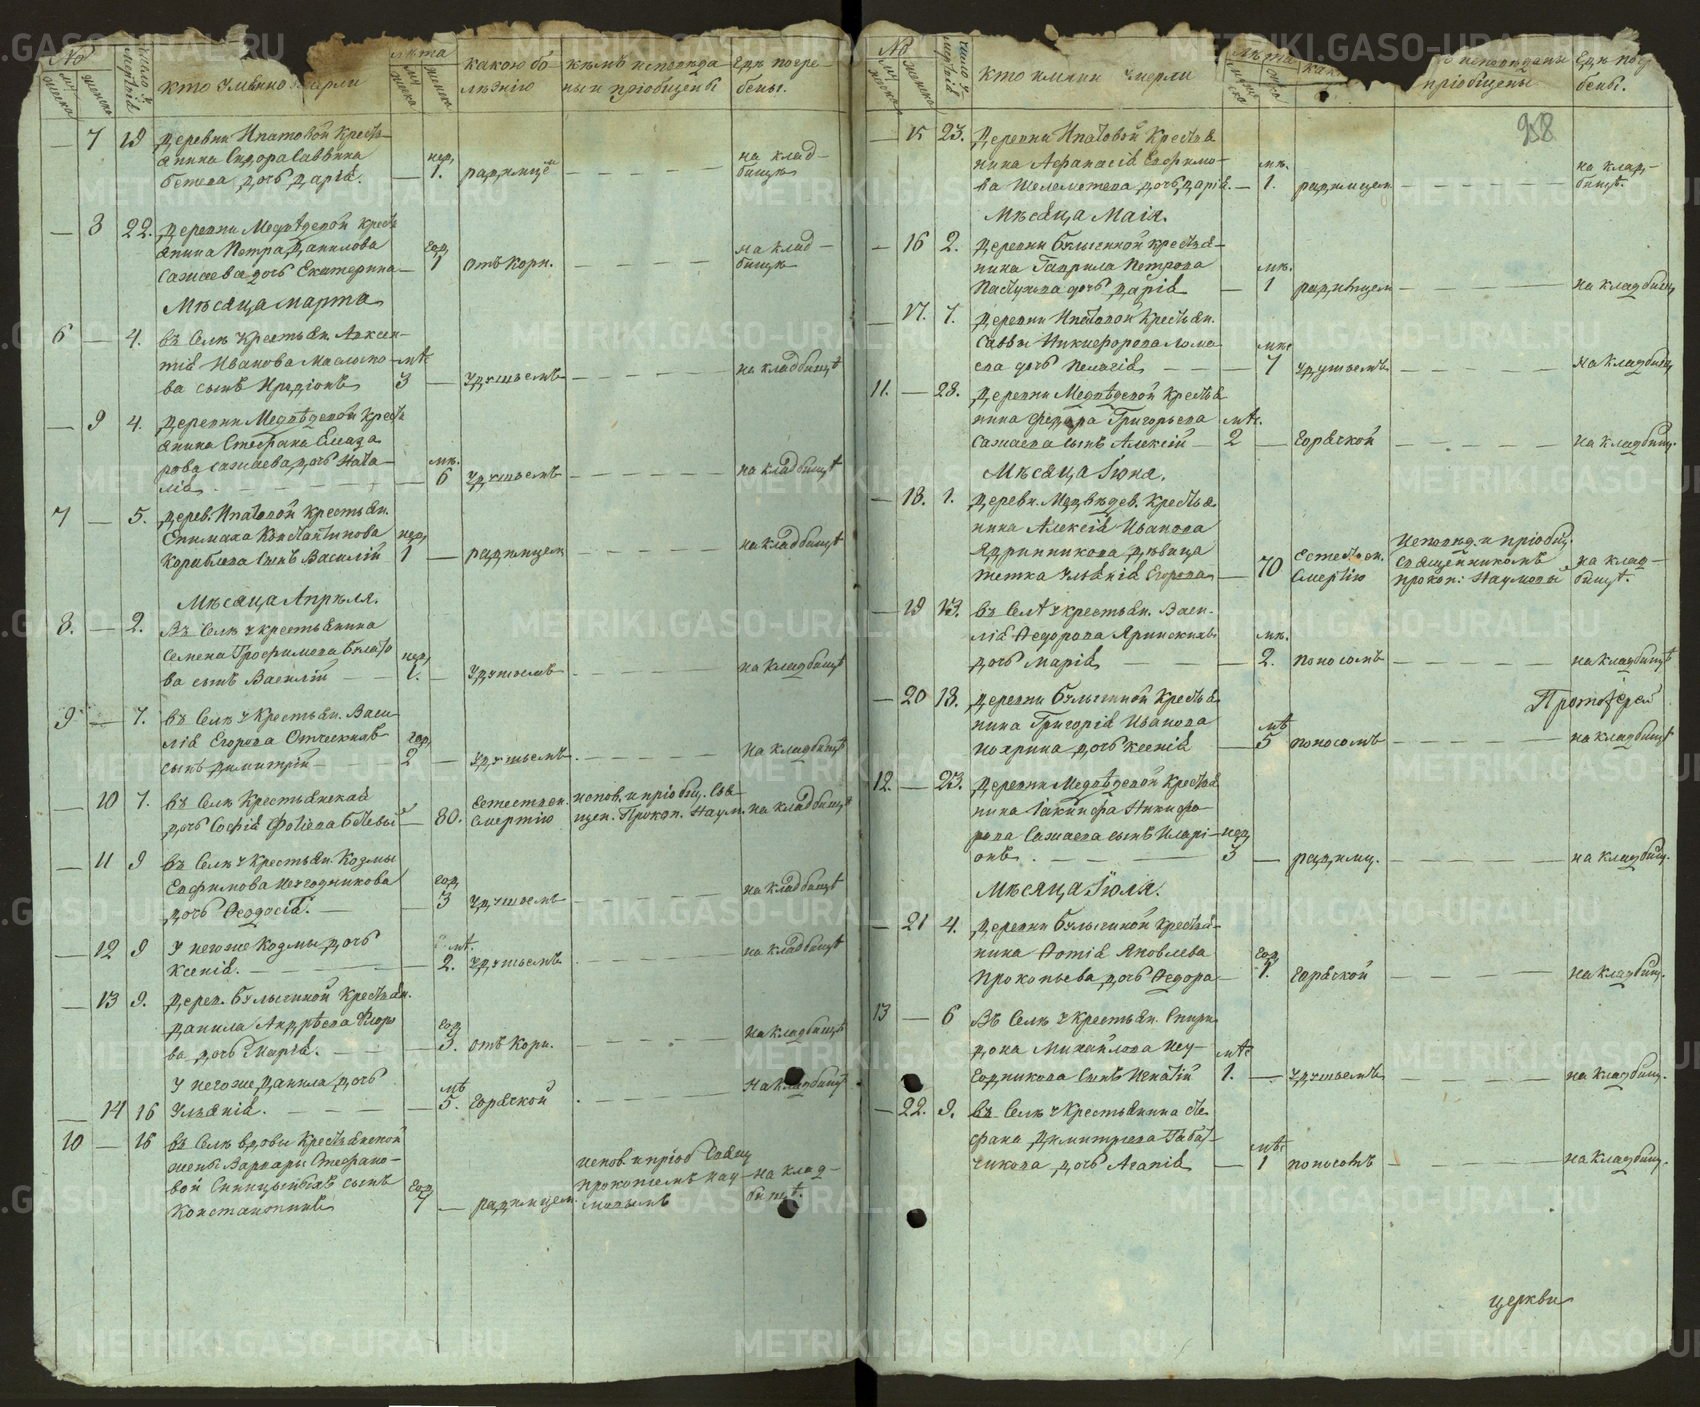 №
мужеска
женска
число у
мертвія
кто имянно умерли
лѣта
мужеска
женска
какою бо
лѣзнію
кѣмъ исповѣда
ны и пріобщены
гдѣ погре
бены.
— 7 19 Деревни Ипатовой Кресть
янина Сидора Саввина
дочь Дарія. — нед. 1. радимце — на клад-
бищѣ
— 8 22. Деревни Медвѣдевой Кресть
янина Петра Данилова
Сажаева дочь Екатерина — год 1 отъ Кори. — на клад-
бищѣ
Мѣсяца Марта
6 — 4. въ Селѣ у Крестьян. Авксен-
тія Иванова
ва сынъ Иродіонъ лѣт. 3 — удушьемъ — на кладбищѣ
— 9 4. Деревни Медвѣдевой Кресть
янина Стефана Елеаза
рова Сажаева дочь Ната-
лія — мѣ. 6 удушьемъ — на кладбищѣ
7 — 5. Дерев. Ипатовой Крестьян.
Епимаха Константинова
Кораблева сынъ Василій нед. 1 — радимцем — на кладбищѣ
Мѣсяца Апрѣля.
8. — 2. Въ Селѣ у крестьянина
Семена Трофимова Булато
ва сынъ Василій — нед. 1. — удушьемъ — на кладбищѣ
9 — 7. въ Селѣ у Крестьян. Васи
лія Егорова
сынъ Димитрій — год 2 — удушьемъ — на кладбищѣ
— 10 7. въ Селѣ Крестьянская
дочь Софія Фотіева — 80. Естествен.
смертію исповѣд. и пріобщ. Свя
щен. Прокоп. Наум. на кладбищѣ
— 11 9 въ Селѣ у Крестьян. Козмы
Евфимова Негодникова
дочь Ѳеодосія. — год 3 удушьемъ — на кладбищѣ
— 12 9 У негоже Козмы дочь
Ксенія. — лѣт. 2. удушьемъ — на кладбищѣ
— 13 9. Дерев. Булыгиной Крестьян.
Данила Андрѣева Флоро
ва дочь Марія. — год 3. отъ Кори. — на кладбищѣ
У негоже Данила дочь
— 14 16 Ульянія. — лѣ 5. горячкой — на кладбищѣ
10 — 16 въ Селѣ вдовы Крестьянской
жены Варвары Стефано-
вой Синицыныхъ сынъ
Константинъ год 7 — радимцем. испов. и пріоб. Свящ
Прокопіемъ Нау-
мовымъ на клад-
бищѣ.
№
мужеска
женска
число у
мертвія
кто имянно умерли
лѣта
исповѣданы
пріобщены
гдѣ погр
бены.
958
— 15 23. Деревни Ипатовой Крестья
нина Аѳанасія Евфимо-
ва Шелеметева дочь Дарія. — мѣ. 1. радимцем — на клад-
бищѣ.
Мѣсяца Маія.
— 16 2. Деревни Булыгиной крестья-
нина Гаврила Петрова
Пастухова дочь Дарія — мѣ. 1 радимцем — на кладбищ
— 17. 7. Деревни Ипатовой Крестьян.
Саввы Никифорова Лома
ева дочь Пелагія — мѣ. 7 удушьемъ — на кладбищ
11. — 28. Деревни Медвѣдевой Крестья
нина Ѳедора Григорьева
Сажаева сынъ Алексій — лѣт. 2 — горячкой — на кладбищ.
Мѣсяца Іюня.
— 18. 1. Деревн. Медвѣдев. Крестья
нина Алексія Иванова
Ядринникова дѣвица
тетка Ульянія Егорова — 70 Естествен.
Смертію исповѣд. и пріобщ.
Священникомъ
прокоп: Наумовы на клад-
бищѣ.
— 19 13. въ Селѣ у крестьян. Васи-
лія Ѳедорова Яринскихъ
дочь Марія — мѣ. 2. поносомъ — на кладбищѣ
Протоіерей
— 20 18. Деревни Булыгиной Крестья
нина Григорія Иванова
дочь Ксенія — мѣ 5 поносомъ — на кладбищѣ
12. — 23. Деревни Медвѣдевой Крестья
нина Іакинфа Никифо-
рова Сажаева сынъ Иларі-
онъ. — нед 3 — радимц. — на кладбищ.
Мѣсяца Іюля.
— 21 4. Деревни Булыгиной Крестья-
нина Ѳотія Яковлева
Прокопьева дочь Ѳедора — год 1. горячкой — на кладбищ.
13 — 6 Въ Селѣ у Крестьян. Спири
дона Михайлова Нег-
годникова сынъ Игнатій лѣт 1. — удушьемъ — на кладбищ.
— 22. 9. въ Селѣ у Крестьянина Сте
фана Димитріева
дочь Агапія — лѣт 1 поносомъ — на кладбищ.
церкви